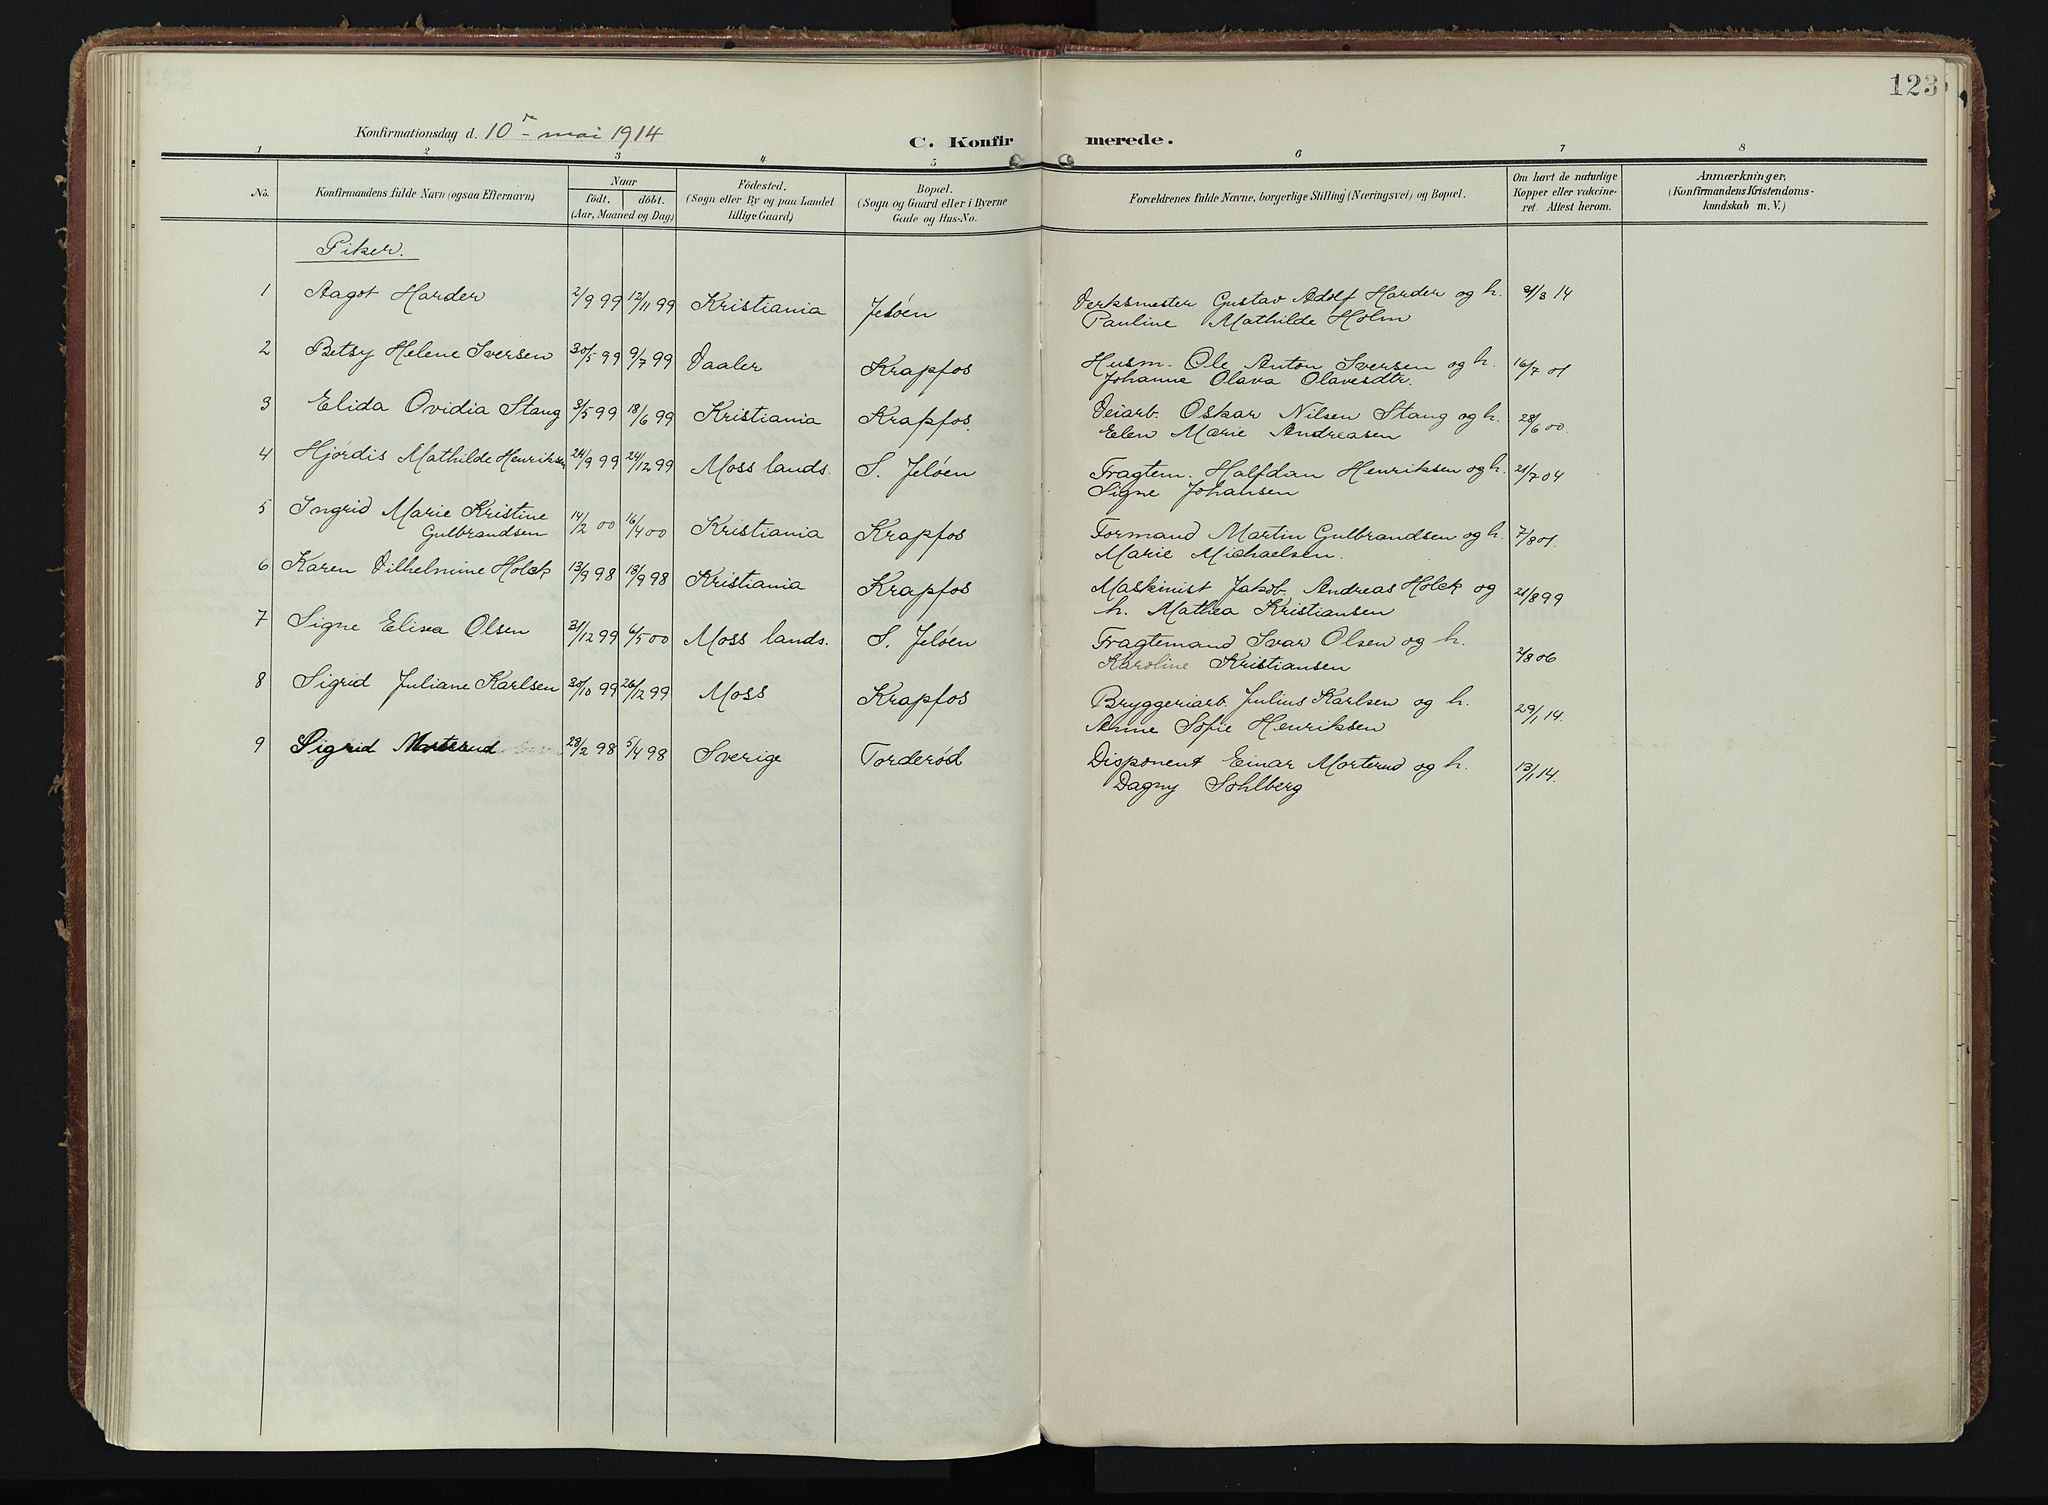 123
Konfirmationsdag d. 10de mai 1914
C. Konfirmerede.
1 2 3 4 5 6 7 8
No.
Konfirmandens fulde Navn (ogsaa Efternavn)
Naar
født. døbt.
(Aar, Maaned og Dag)
Fødested.
(Sogn eller By og paa Landet
tillige Gaard)
Bopæl.
(Sogn og Gaard eller i Byerne
Gade og Hus-No.
Forældrenes fulde Navne, borgerlige Stilling (Næringsvei) og Bopæl.
Om havt de naturlige
Kopper eller vakcine-
ret. Attest herom.
Anmærkninger,
(Konfirmandens Kristendoms-
kundskab m. V.)
Piker.
1 Aagot Harder 2/9 99 12/11 99 Kristiania Jeløen Verksmester Gustav Adolf Harder og h. /3 14
Pauline Mathilde Holm
2 Betsy Helene Iversen 30/5 99 9/7 99 Vaaler Krapfos Husm. Ole Anton Iversen og h. 16/7 01
Johanne Olava Olavesdtr.
3 Elida Ovidia Stang 3/5 99 18/6 99 Kristiania Krapfos. Veiarb. Oskar Nilsen Stang og h. 28/6 00.
Elen Marie Andreasen
4 Hjørdis Mathilde Henriksen 24/9 99 24/12 99 Moss lands. S. Jeløen Fragtem. Halfdan Henriksen og h. 21/7 04
Signe Johansen
5 Ingrid Marie Kristine
Gulbrandsen 14/2 00 16/4 00 Kristiania Krapfos Formand Martin Gulbrandsen og h. 7/8 01.
Marie Michaelsen.
6 Karen Vilhelmine Holck 13/9 98 18/9 98 Kristiania Krapfos Maskinist Jakob Andreas Holck og 21/8 99
h. Mathea Kristiansen
7 Signe Elisea Olsen 31/12 99 6/5 00 Moss lands. S. Jeløen Fragtemand Ivar Olsen og h. 2/8 06
Karoline Kristiansen
8 Sigrid Juliane Karlsen 30/10 99 26/12 99 Moss Krapfos Bryggeriarb. Julius Karlsen og h. 29/1 14.
Anne Sofie Henriksen
9 Sigrid Morterud 28/2 98 5/4 98 Sverige Torderød Disponent Einar Morterud og h. 13/1 14.
Dagny Sohlberg